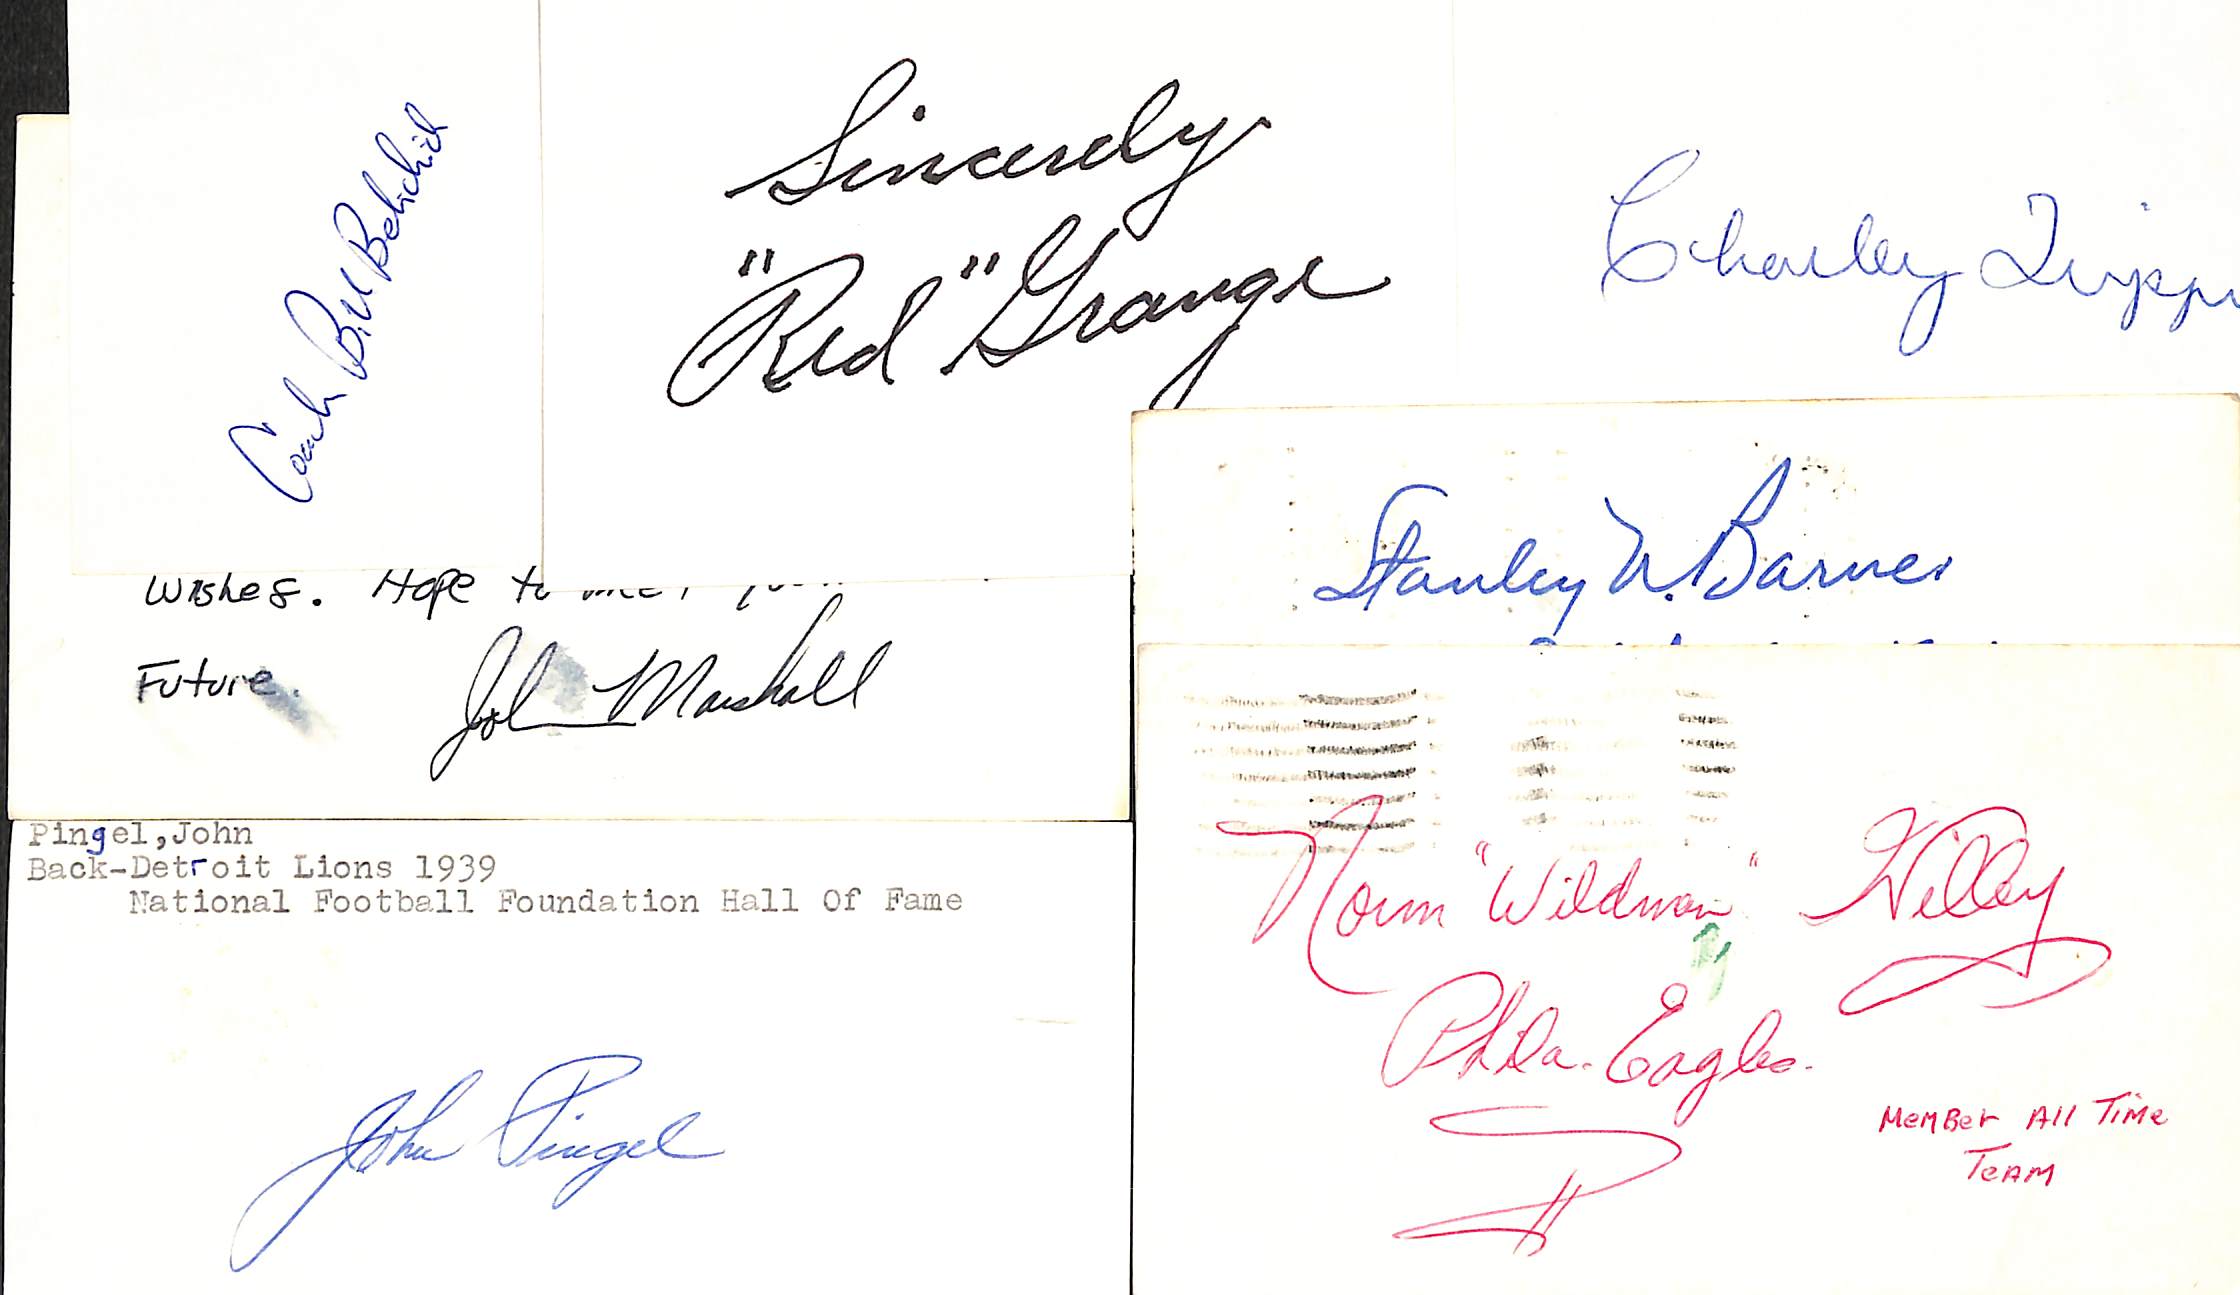 Coach Bill Belichick
Sincerely
"Red" Grange
Charley Trippi
Stanley N. Barnes
Wishes. Hope to meet you
Future.
John Marshall
Pingel,John
Back-Detroit Lions 1939
National Football Foundation Hall Of Fame
John Pingel
Norm "Wildman" Willey
Phila. Eagles.
Member All Time
Team